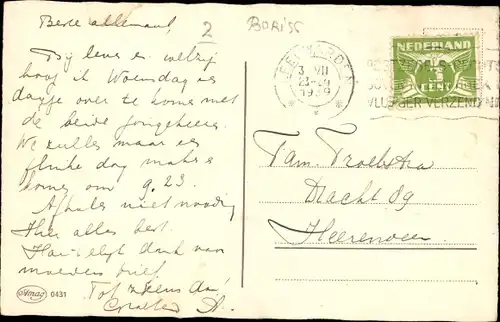 Beste allemaal,
2
BORiSS
Bij leven en welzijn
hoop ik Woensdag een
dagje over te komen met
de beide jongeheeren.
We zullen maar een
flinke dag maken
komen om 9.23.
Afhalen niet noodig
Hier alles best.
Hartelijk dank van
moeders brief.
Tot ziens dan
LEEUWARDEN
3 VII
1939
POSTZEGELS RECHTS
VLUGGER VERZENDING
NEDERLAND
3
CENT
Fam. Troelstra
Dracht 89
Heerenveen
Amag 0431